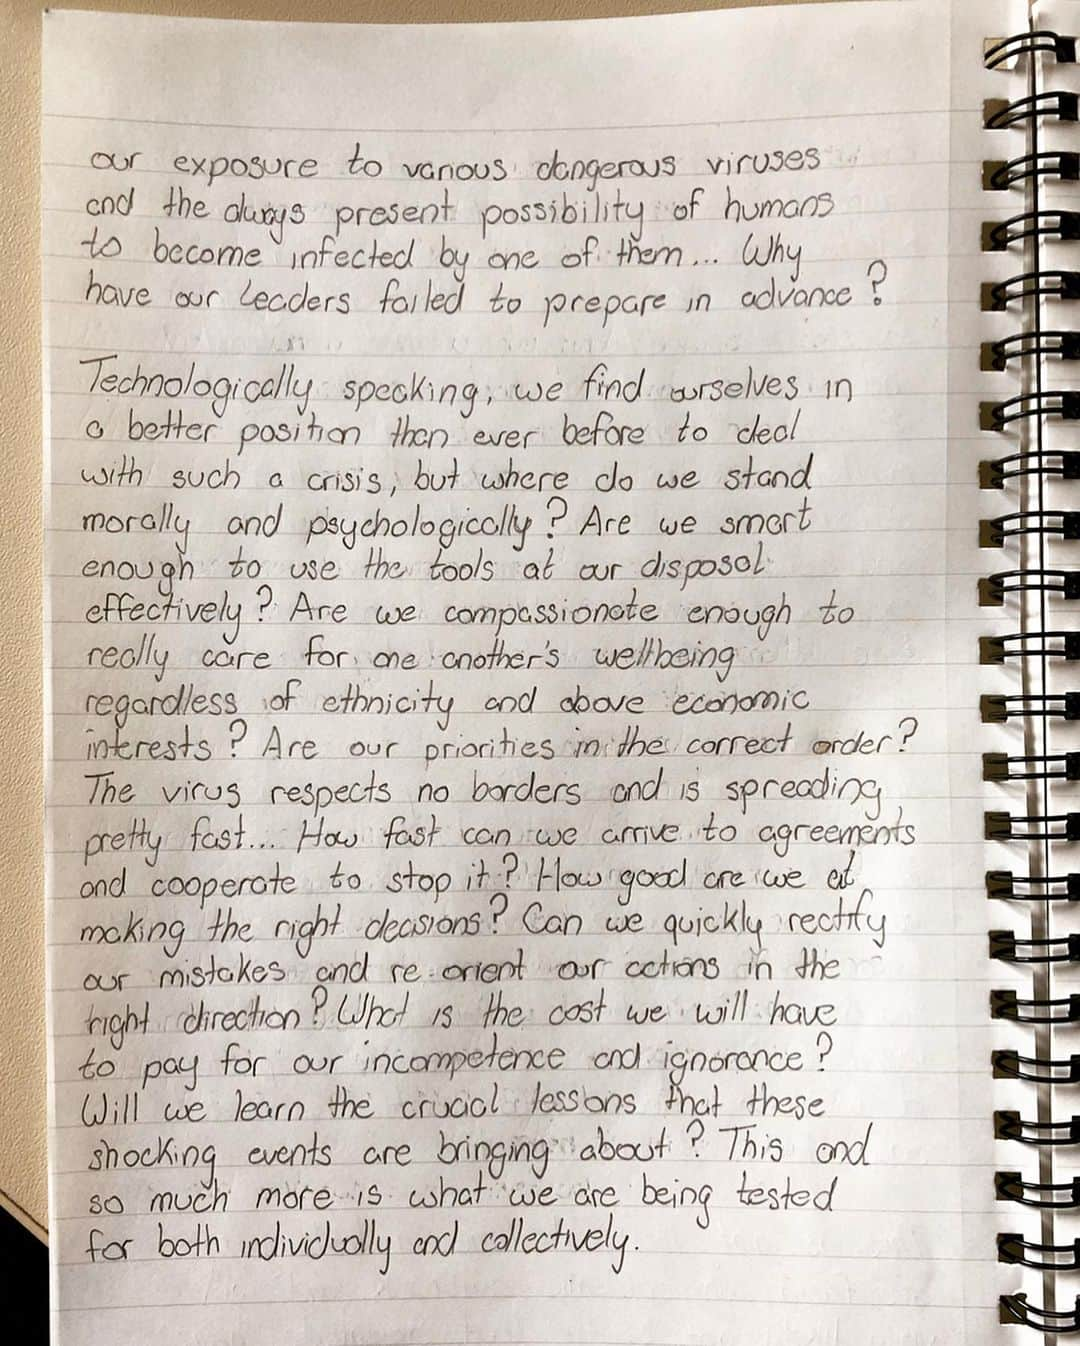 our exposure to various dangerous viruses
and the always present possibility of humans
to become infected by one of them... Why
have our leaders failed to prepare in advance?
Technologically speaking, we find ourselves in
a better position than ever before to deal
with such a crisis, but where do we stand
morally and psychologically? Are we smart
enough to use the tools at our disposal
effectively? Are we compassionate enough to
really care for one another's wellbeing
regardless of ethnicity and above economic
interests? Are our priorities in the correct order?
The virus respects no borders and is spreading
pretty fast... How fast can we arrive to agreements
and cooperate to stop it? How good are we at
making the right decisions? Can we quickly rectify
our mistakes and re-orient our actions in the
right direction? What is the cost we will have
to pay for our incompetence and ignorance?
Will we learn the crucial lessons that these
shocking events are bringing about? This and
so much more is what we are being tested
for both individually and collectively.